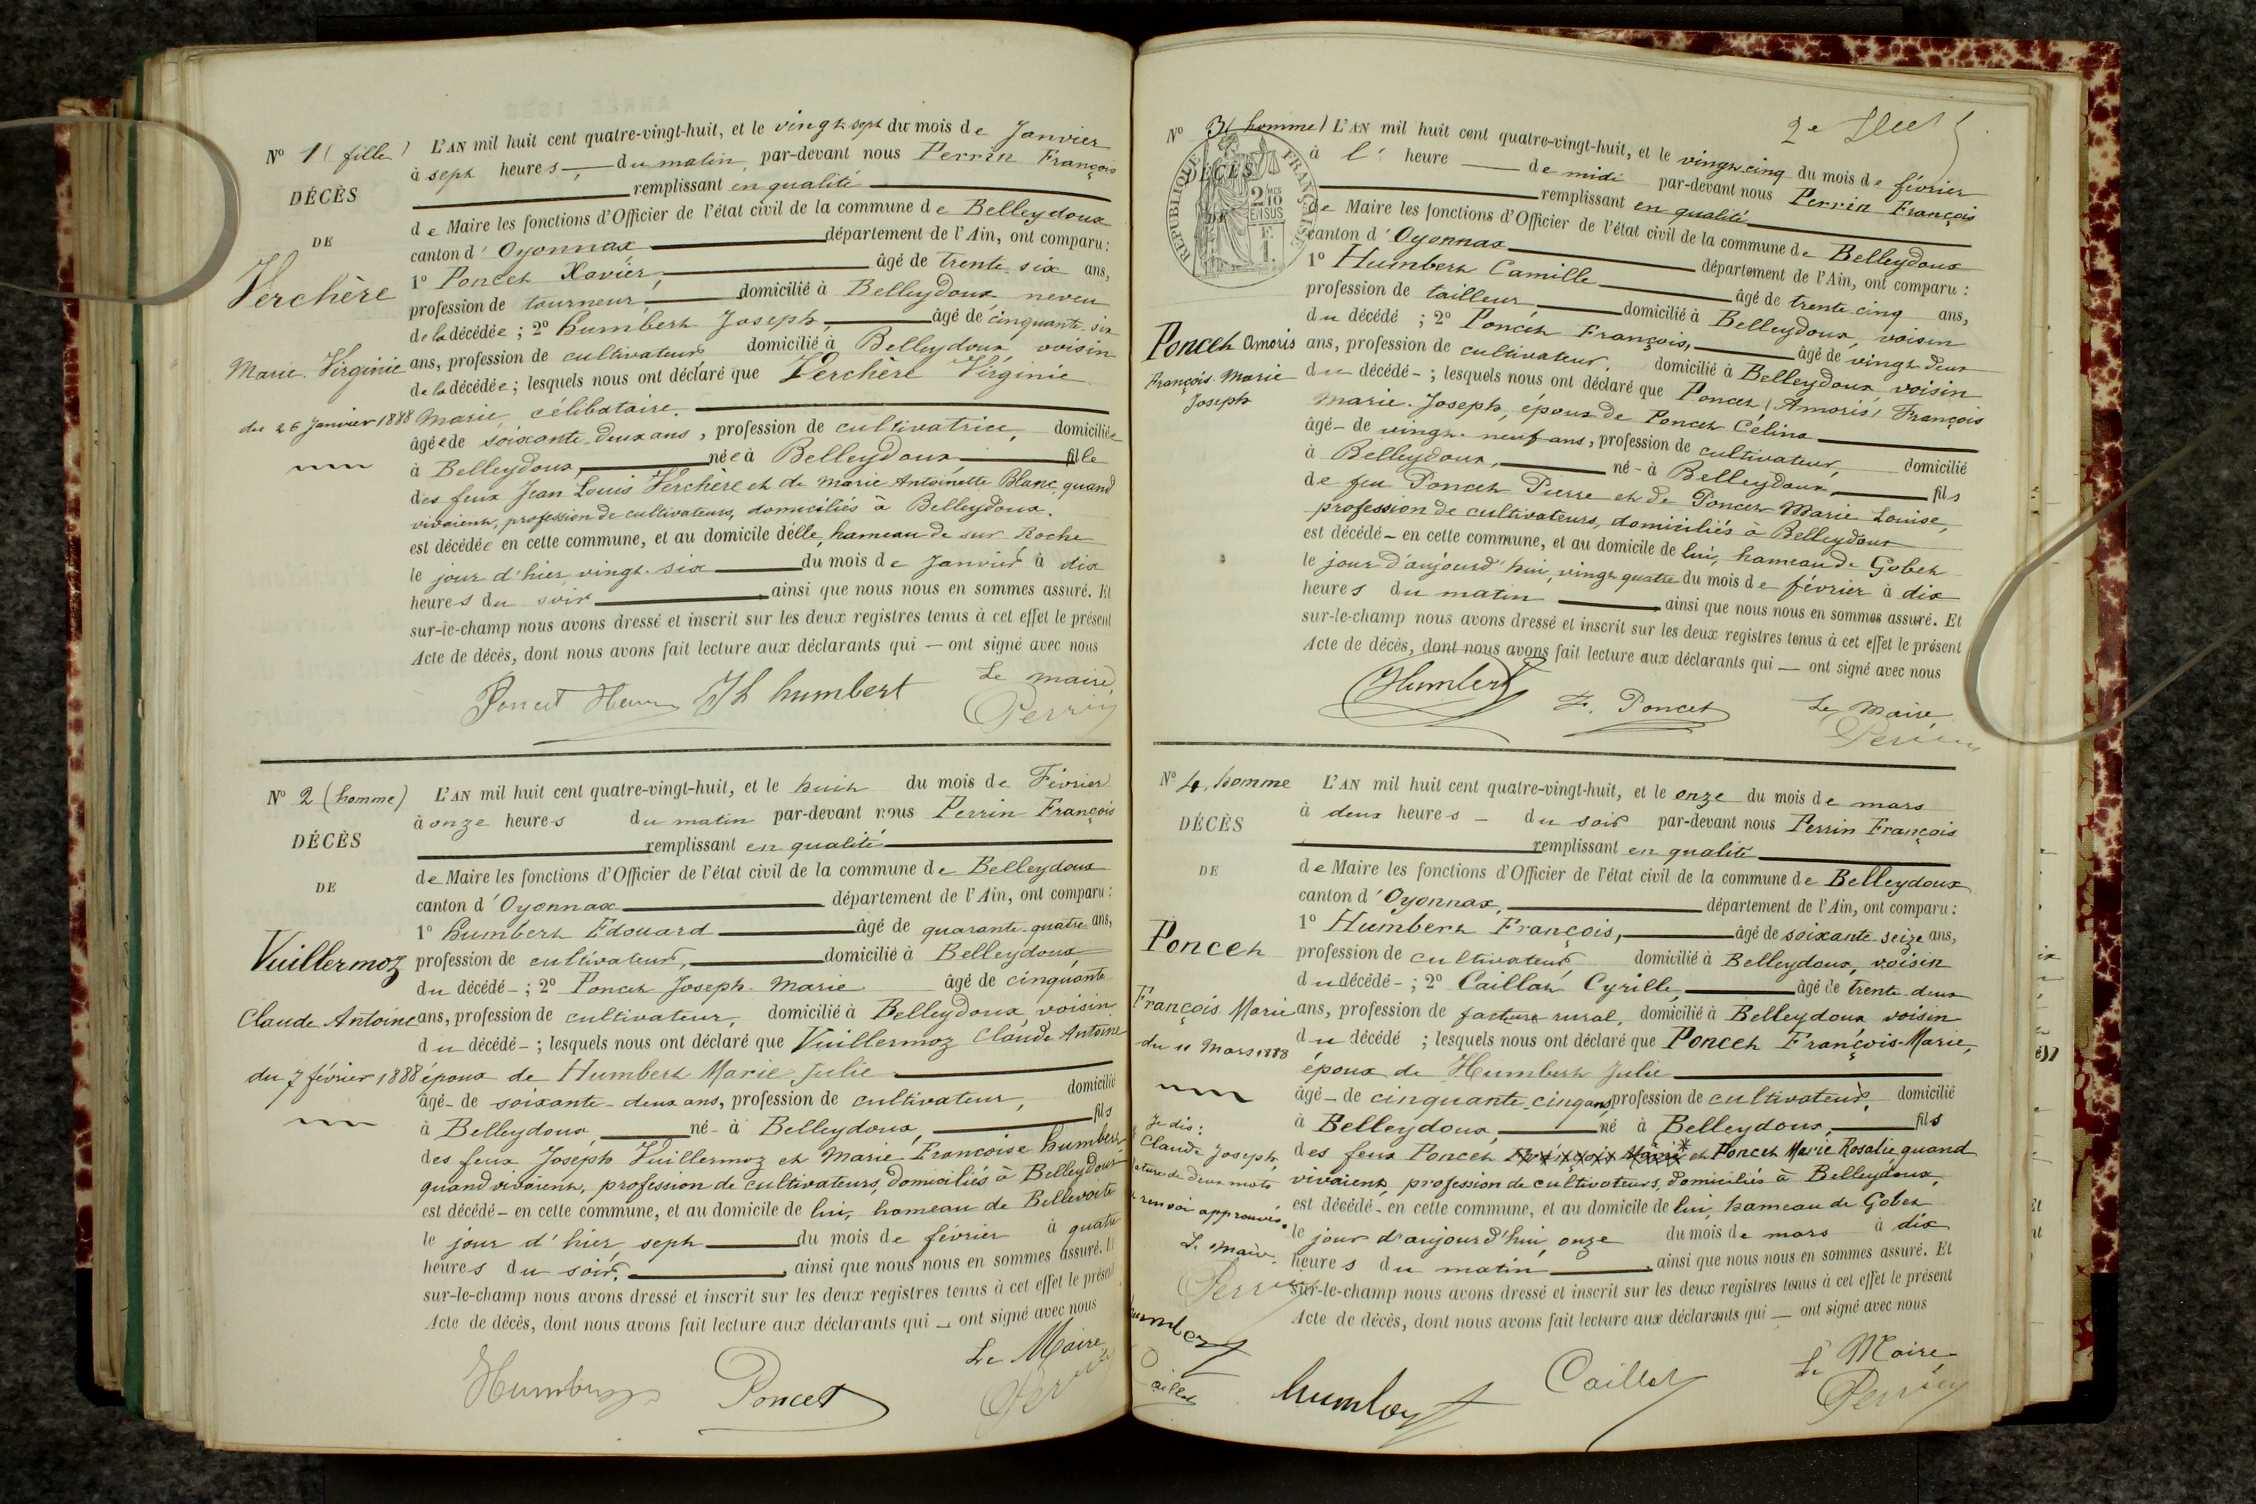 N° 1 (fille)
DÉCÈS
DE
Verchère
Marie Virginie
du 26 Janvier 1888
L'AN mil huit cent quatre-vingt-huit, et le vingt-sept du mois de Janvier
à sept heures, du matin par-devant nous Perrin François
remplissant en qualité
de Maire les fonctions d'Officier de l'état civil de la commune de Belleydoux
canton d'Oyonnax département de l'Ain, ont comparu :
1° Poncet Xavier, âgé de trente-six ans,
profession de tourneur, domicilié à Belleydoux, neveu
de la décédée ; 2° humbert Joseph, âgé de cinquante-six
ans, profession de cultivateur domicilié à Belleydoux voisin
de la décédée ; lesquels nous ont déclaré que Verchère Virginie
Marie, célibataire.
âgée de soixante-deux ans, profession de cultivatrice, domiciliée
à Belleydoux, née à Belleydoux fille
des feux Jean Louis Verchère et de Marie Antoinette Blanc, quand
vivaient, profession de cultivateurs, domiciliés à Belleydoux.
est décédée en cette commune, et au domicile d'elle, hameau de sur Roche
le jour d'hier vingt-six du mois de Janvier à dix
heures du soir ainsi que nous nous en sommes assuré. Et
sur-le-champ nous avons dressé et inscrit sur les deux registres tenus à cet effet le présent
Acte de décès, dont nous avons fait lecture aux déclarants qui — ont signé avec nous
Le maire,
Poncet humbert Perrin
N° 2 (homme)
DÉCÈS
DE
Vuillermoz
Claude Antoine
du 7 février 1888
L'AN mil huit cent quatre-vingt-huit, et le huit du mois de Février
à onze heures du matin par-devant nous Perrin François
remplissant en qualité
de Maire les fonctions d'Officier de l'état civil de la commune de Belleydoux
canton d'Oyonnax département de l'Ain, ont comparu :
1° humbert Edouard âgé de quarante-quatre ans,
profession de cultivateur, domicilié à Belleydoux
du décédé - ; 2° Poncet Joseph-Marie âgé de cinquante
ans, profession de cultivateur, domicilié à Belleydoux voisin
du décédé - ; lesquels nous ont déclaré que Vuillermoz Claude Antoine
époux de Humbert Marie Julie
âgé - de soixante-deux ans, profession de cultivateur, domicilié
à Belleydoux, né - à Belleydoux, fils
des feux Joseph Vuillermoz et Marie Francoise humbert
quand vivaient, profession de cultivateurs, domiciliés à Belleydoux
est décédé - en cette commune, et au domicile de lui, hameau de Bellevoite
le jour d'hier, sept du mois de février à quatre
heures du soir, ainsi que nous nous en sommes assuré. Et
sur-le-champ nous avons dressé et inscrit sur les deux registres tenus à cet effet le présent
Acte de décès, dont nous avons fait lecture aux déclarants qui — ont signé avec nous
Le Maire
Humbert Poncet Perrin
2e
N° 3 (homme)
DÉCÈS
DE
RÉPUBLIQUE FRANÇAISE
Poncet Amoris
François Marie
Joseph
L'AN mil huit cent quatre-vingt-huit, et le vingt-cinq du mois de février
à l' heure de midi par-devant nous Perrin François
remplissant en qualité
de Maire les fonctions d'Officier de l'état civil de la commune de Belleydoux
canton d'Oyonnax département de l'Ain, ont comparu :
1° Humbert Camille âgé de trente-cinq ans,
profession de tailleur, domicilié à Belleydoux, voisin
du décédé ; 2° Poncet François, âgé de vingt-deux
ans, profession de cultivateur. domicilié à Belleydoux, voisin
du décédé - ; lesquels nous ont déclaré que Poncet (Amoris) François
Marie-Joseph, époux de Poncet Célina
âgé - de vingt-neuf ans, profession de cultivateur, domicilié
à Belleydoux, né - à Belleydoux, fils
de feu Poncet Pierre et de Poncet Marie Louise,
profession de cultivateurs, domiciliés à Belleydoux
est décédé - en cette commune, et au domicile de lui, hameau de Gobet
le jour d'aujourd'hui, vingt quatre du mois de février à dix
heures du matin ainsi que nous nous en sommes assuré. Et
sur-le-champ nous avons dressé et inscrit sur les deux registres tenus à cet effet le présent
Acte de décès, dont nous avons fait lecture aux déclarants qui — ont signé avec nous
Humbert F. Poncet Le Maire,
Perrin
N° 4, homme
DÉCÈS
DE
Poncet
François Marie
du 11 Mars 1888
Je dis :
Claude Joseph,
rature de deux mots
renvoi approuvés.
Le Maire
Perrin
humbert
Caillat
L'AN mil huit cent quatre-vingt-huit, et le onze du mois de mars
à deux heures - du soir par-devant nous Perrin François
remplissant en qualité
de Maire les fonctions d'Officier de l'état civil de la commune de Belleydoux
canton d'Oyonnax, département de l'Ain, ont comparu :
1° Humbert François, âgé de soixante-seize ans,
profession de cultivateur, domicilié à Belleydoux, voisin
du décédé - ; 2° Caillat Cyrille, âgé de trente-deux
ans, profession de facteur rural, domicilié à Belleydoux voisin
du décédé ; lesquels nous ont déclaré que Poncet François-Marie,
époux de Humbert Julie
âgé - de cinquante-cinq ans, profession de cultivateur, domicilié
à Belleydoux, né à Belleydoux, fils
des feux Poncet François Marie * et Poncet Marie Rosalie, quand
vivaient, profession de cultivateurs, domiciliés à Belleydoux,
est décédé - en cette commune, et au domicile de lui, hameau de Gobet
le jour d'aujourd'hui, onze du mois de mars à dix
heures du matin, ainsi que nous nous en sommes assuré. Et
sur-le-champ nous avons dressé et inscrit sur les deux registres tenus à cet effet le présent
Acte de décès, dont nous avons fait lecture aux déclarants qui — ont signé avec nous
Le Maire
humbert Caillat Perrin